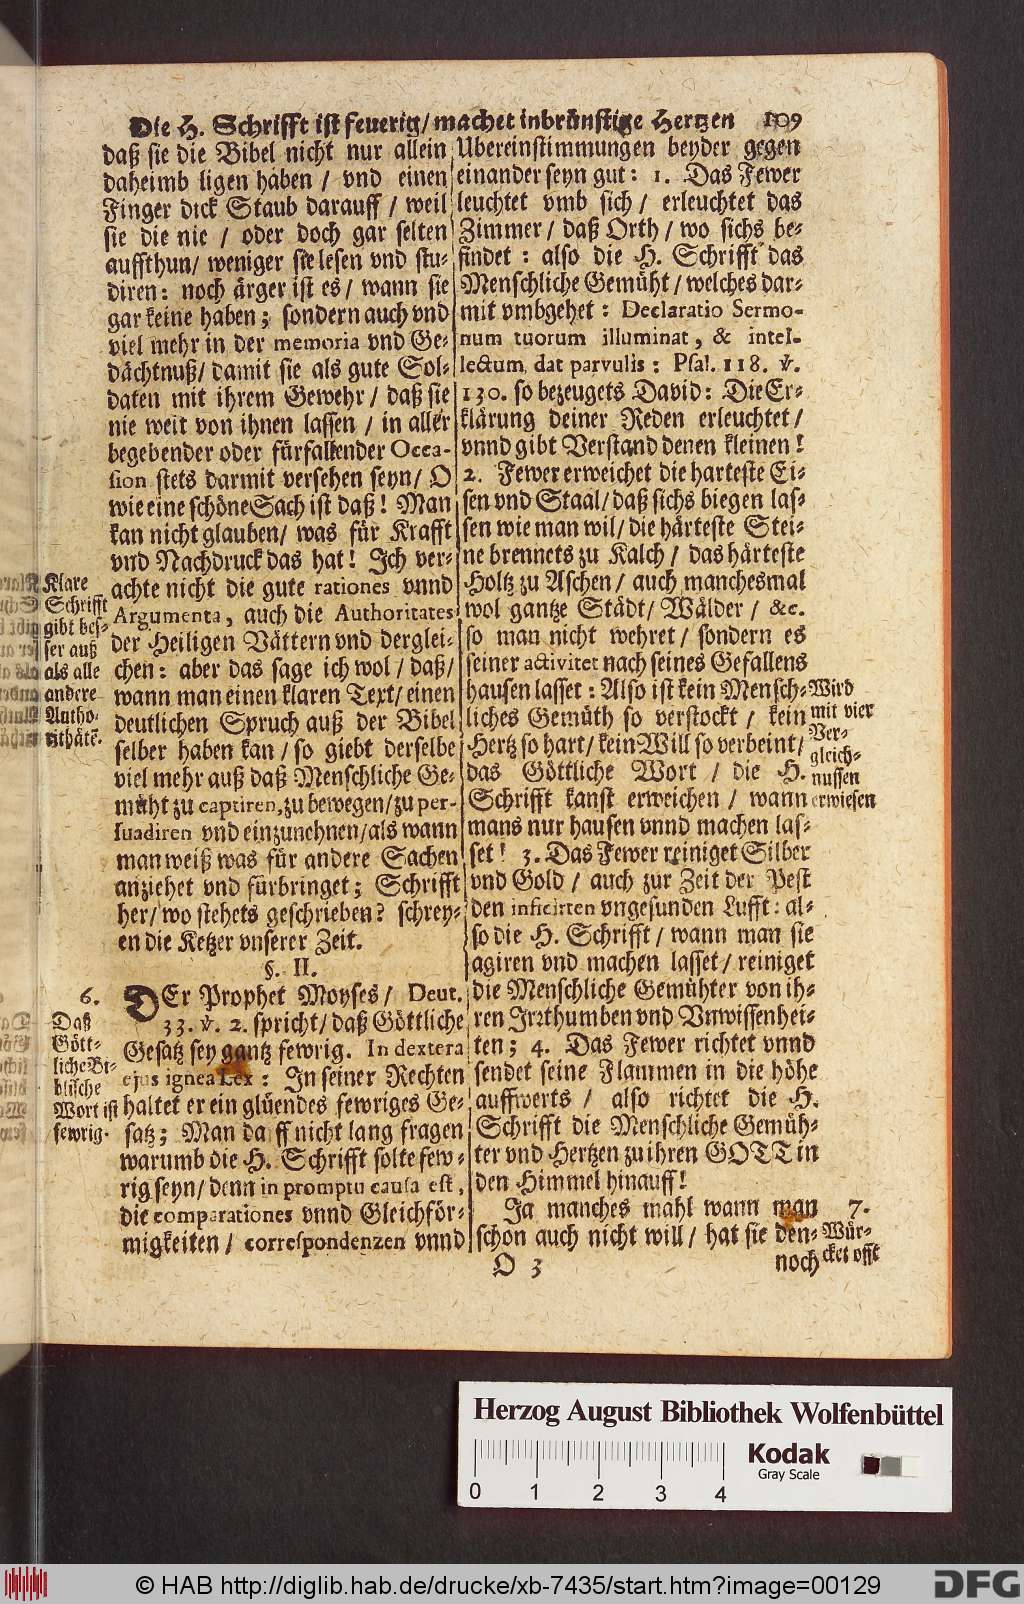 Die H. Schrifft ist feuerig/ machet inbrünstige Hertzen 109
daß sie die Bibel nicht nur allein
daheimb ligen haben / vnd einen
Finger dick Staub darauff / weil
sie die nie / oder doch gar selten
auffthun/ weniger sie lesen vnd stu-
diren: noch ärger ist es / wann sie
gar keine haben; sondern auch vnd
viel mehr in der memoria vnd Ge-
dächtnuß/ damit sie als gute Sol-
daten mit ihrem Gewehr / daß sie
nie weit von ihnen lassen / in aller
begebender oder fürfallender Occa-
sion stets darmit versehen seyn/ O
wie eine schöne Sach ist daß! Man
kan nicht glauben/ was für Krafft
vnd Nachdruck das hat! Ich ver-
achte nicht die gute rationes vnnd
Argumenta, auch die Authoritates
der Heiligen Vättern vnd derglei-
chen: aber das sage ich wol / daß/
wann man einen klaren Text/ einen
deutlichen Spruch auß der Bibel
selber haben kan / so giebt derselbe
viel mehr auß daß Menschliche Ge-
müht zu captiren, zu bewegen/ zu per-
suadiren vnd einzunehnen/ als wann
man weiß was für andere Sachen
anziehet vnd fürbringet; Schrifft
her/ wo stehets geschrieben? schrey-
en die Ketzer vnserer Zeit.
Klare
Schrifft
gibt bes-
ser auß
als alle
andere
Autho-
rithäte.
§. II.
6.
DEr Prophet Moyses / Deut.
33. v. 2. spricht/ daß Göttliche
Gesatz sey gantz fewrig. In dextera
ejus ignea Lex: In seiner Rechten
haltet er ein glüendes fewriges Ge-
satz; Man darff nicht lang fragen
warumb die H. Schrifft solte few-
rig seyn/ denn in promptu causa est,
die comparationes vnnd Gleichför-
migkeiten / correspondenzen vnnd
Daß
Gött-
liche Bi-
blische
Wort ist
fewrig.
Ubereinstimmungen beyder gegen
einander seyn gut: 1. Das Fewer
leuchtet vmb sich / erleuchtet das
Zimmer / daß Orth / wo sichs be-
findet: also die H. Schrifft das
Menschliche Gemüht / welches dar-
mit vmbgehet: Declaratio Sermo-
num tuorum illuminat, & intel-
lectum dat parvulis: Psal. 118. v.
130. so bezeugets David: Die Er-
klärung deiner Reden erleuchtet /
vnnd gibt Verstand denen kleinen!
2. Fewer erweichet die harteste Ei-
sen vnd Staal/ daß sichs biegen las-
sen wie man wil/ die härteste Stei-
ne brennets zu Kalch / das härteste
Holtz zu Aschen / auch manchesmal
wol gantze Städt/ Wälder / &c.
so man nicht wehret / sondern es
seiner activitet nach seines Gefallens
hausen lasset: Also ist kein Mensch-
liches Gemüth so verstockt / kein
Hertz so hart / kein Will so verbeint/
das Göttliche Wort / die H.
Schrifft kanst erweichen / wann
mans nur hausen vnnd machen las-
set! 3. Das Fewer reiniget Silber
vnd Gold / auch zur Zeit der Pest
den inficirten vngesunden Lufft: al-
so die H. Schrifft / wann man sie
agiren vnd machen lasset / reiniget
die Menschliche Gemühter von ih-
ren Irrthumben vnd Vnwissenhei-
ten; 4. Das Fewer richtet vnnd
sendet seine Flammen in die höhe
auffwerts / also richtet die H.
Schrifft die Menschliche Gemüh-
ter vnd Hertzen zu ihren GOTT in
den Himmel hinauff!
Wird
mit vier
Ver-
gleich-
nussen
erwiesen
Ja manches mahl wann man
schon auch nicht will / hat sie den-
7.
Wür-
cket offt
O 3
noch
Herzog August Bibliothek Wolfenbüttel
Kodak
Gray Scale
0 1 2 3 4
© HAB http://diglib.hab.de/drucke/xb-7435/start.htm?image=00129
DFG